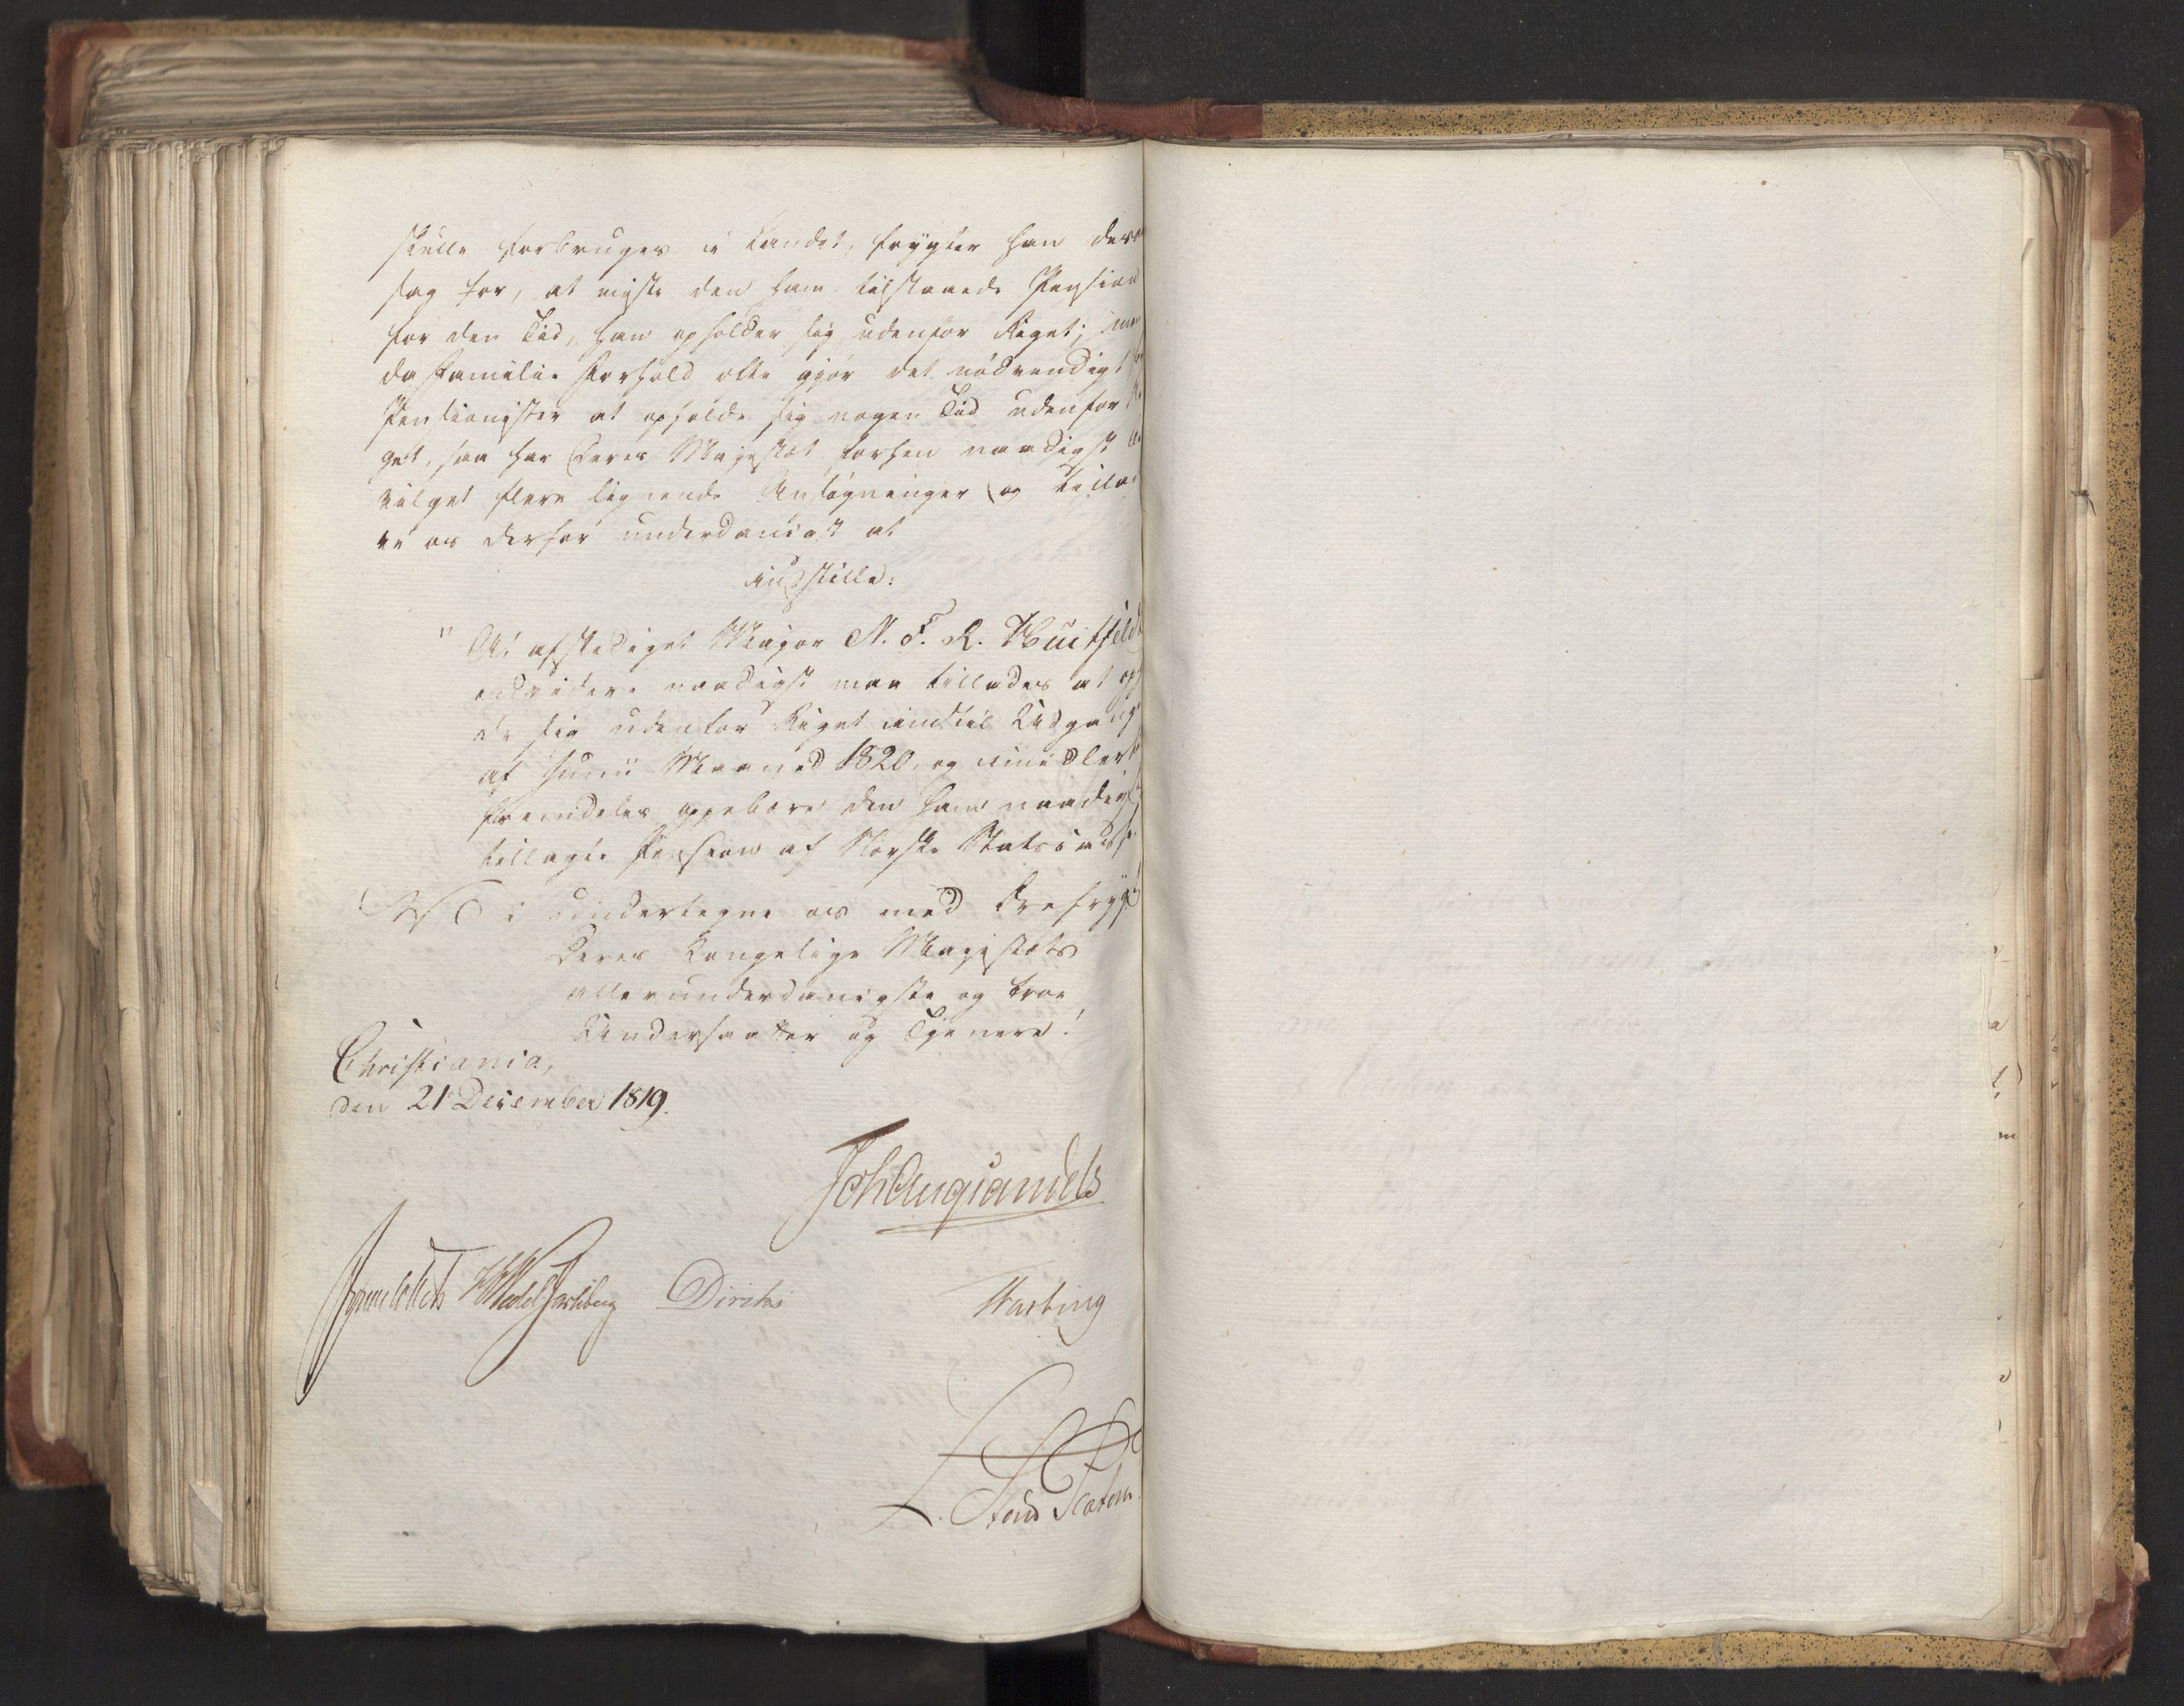 skulle forbruges i Landet, frygter han des
sag for, at miste den ham tilstaaede Pension
for den Tid, han opholder sig udenfor Riget; men
da Familie Forhold ofte gjør det nødvendigt
Pensionister at opholde sig nogen Tid udenfor
get, saa har Deres Majestæt forhen naadigst
vilget flere lignende Ansøgninger og tillade
vi os derfor underdanigst at
indstille:
"At afskediget Major N. F. R. Huitfeldt
endvidere naadigst maa tillades at oph
de sig udenfor Riget indtil Udgang
af Junii Maaned 1820, og imidlert
fremdeles oppebære den ham naadigst
tillagte Pension af Norske Statscasse
Vi undertegne os med Ærefrygt
Deres Kongelige Majestæts
allerunderdanigste og troe
Undersaatter og Tjenere!
Christiania,
den 21 December 1819.
JohAugSandels
Sommelhielm HWedel Jarlsberg Diriks
Fasting
L. Stoud Platou